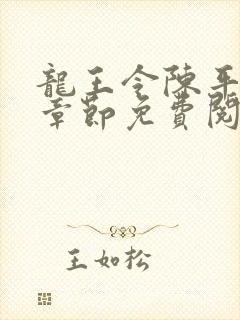 龍王令陳平
章節免費閱
王如松